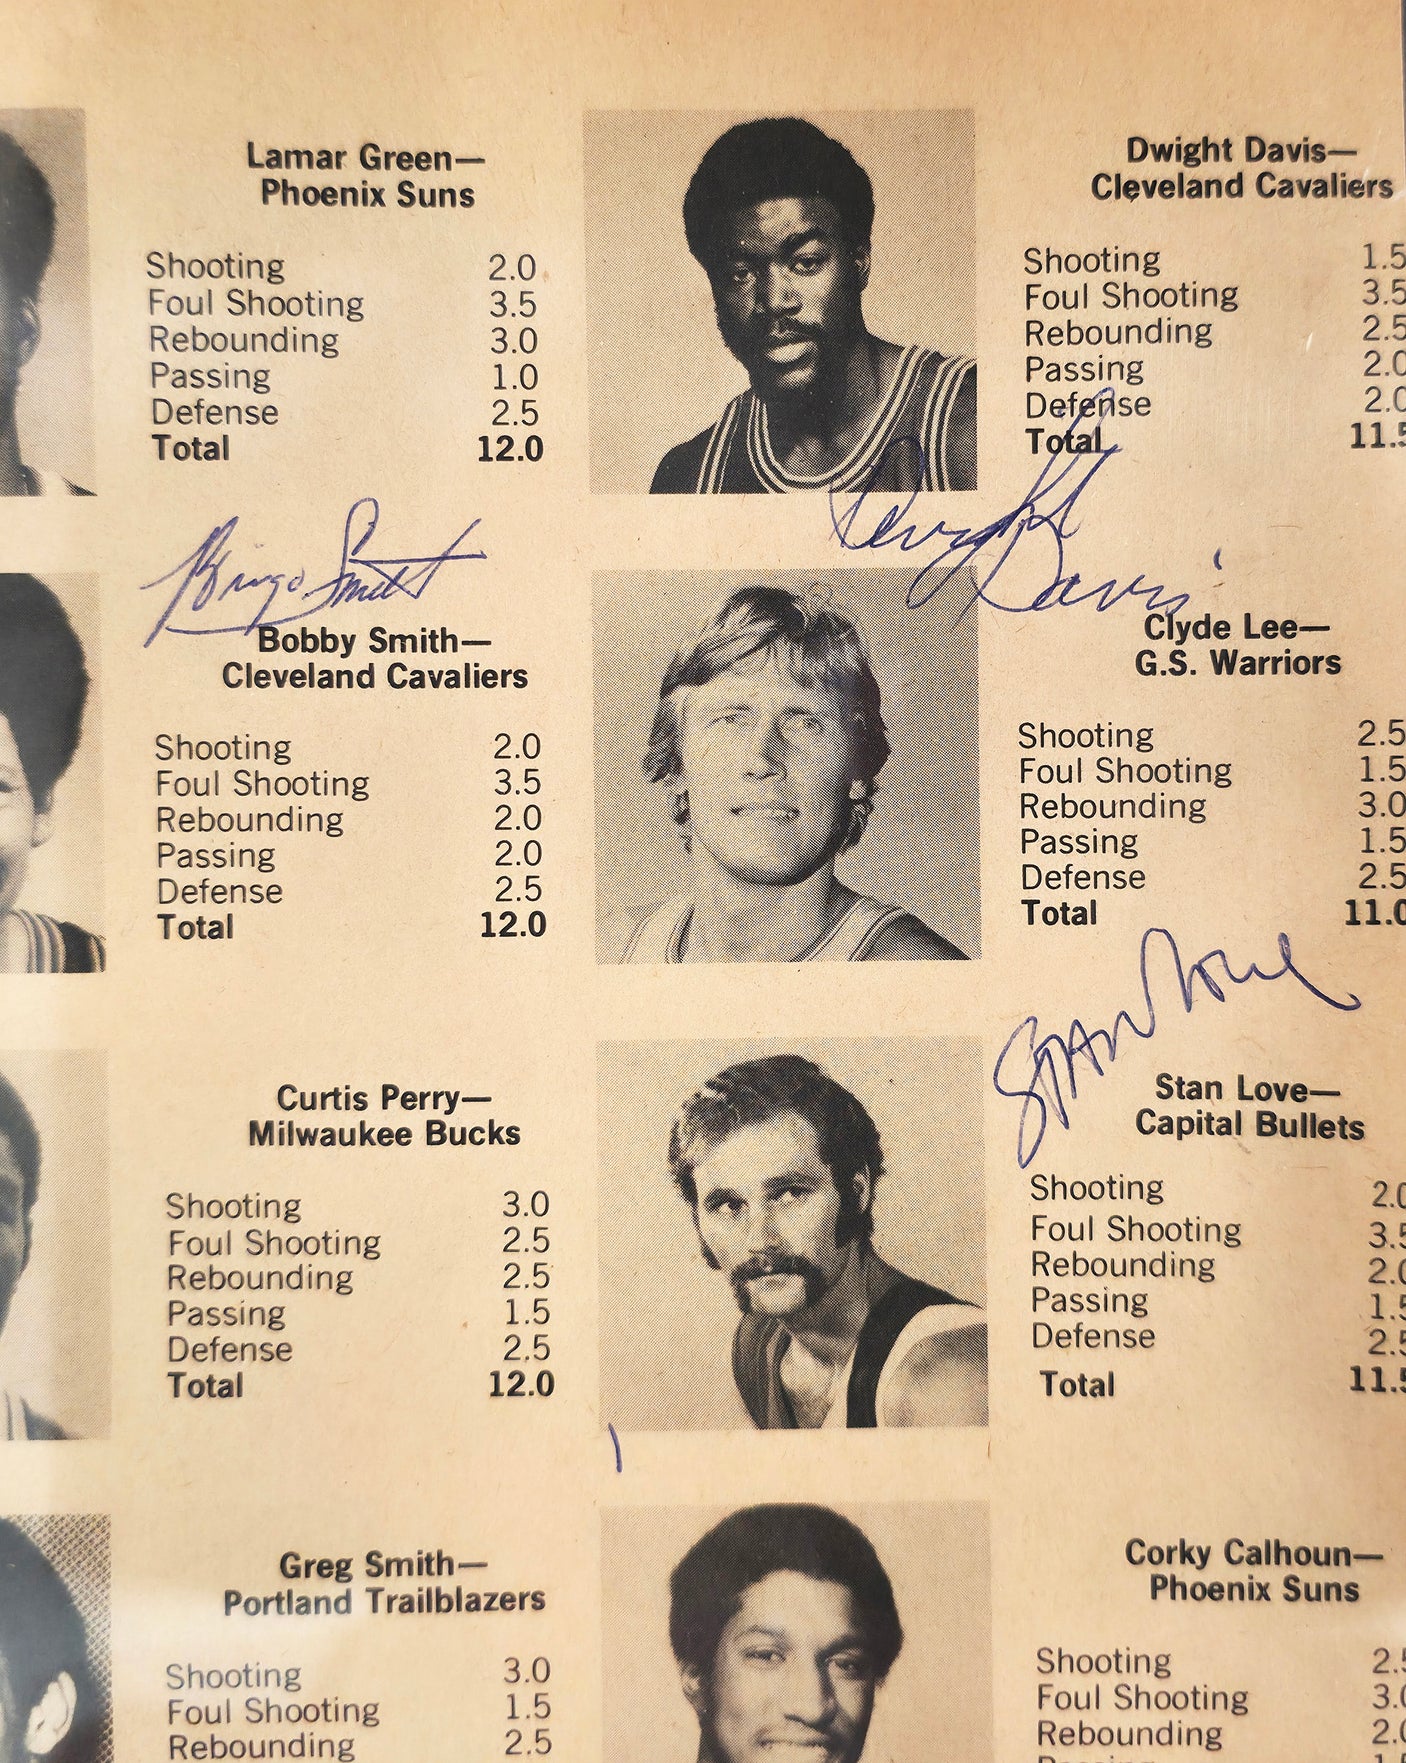 Lamar Green—
Phoenix Suns
Shooting 2.0
Foul Shooting 3.5
Rebounding 3.0
Passing 1.0
Defense 2.5
Total 12.0
Dwight Davis—
Cleveland Cavaliers
Shooting 1.5
Foul Shooting 3.5
Rebounding 2.5
Passing 2.0
Defense 2.0
Total 11.5
Dwight
Davis
Bingo Smith
Bobby Smith—
Cleveland Cavaliers
Shooting 2.0
Foul Shooting 3.5
Rebounding 2.0
Passing 2.0
Defense 2.5
Total 12.0
Clyde Lee—
G.S. Warriors
Shooting 2.5
Foul Shooting 1.5
Rebounding 3.0
Passing 1.5
Defense 2.5
Total 11.0
Curtis Perry—
Milwaukee Bucks
Shooting 3.0
Foul Shooting 2.5
Rebounding 2.5
Passing 1.5
Defense 2.5
Total 12.0
STAN Love
Stan Love—
Capital Bullets
Shooting 2.0
Foul Shooting 3.5
Rebounding 2.0
Passing 1.5
Defense 2.5
Total 11.5
Greg Smith—
Portland Trailblazers
Shooting 3.0
Foul Shooting 1.5
Rebounding 2.5
Corky Calhoun—
Phoenix Suns
Shooting 2.5
Foul Shooting 3.0
Rebounding 2.0